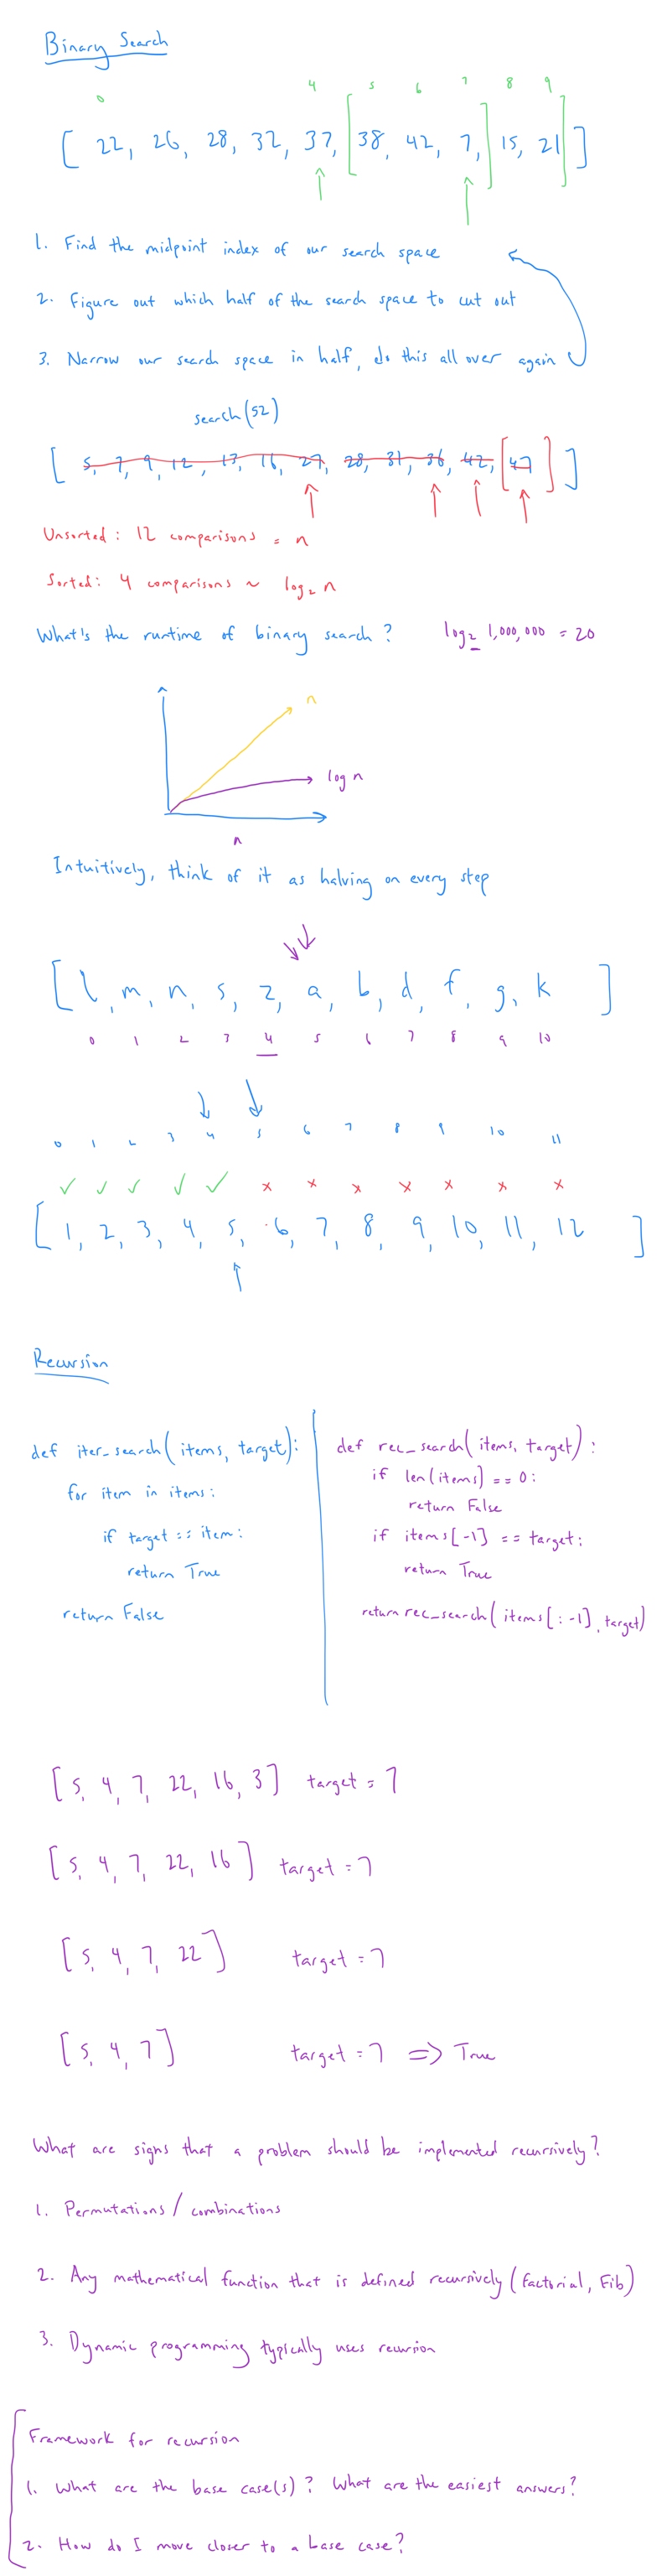 Binary Search
0 4 5 6 7 8 9
[ 22, 26, 28, 32, 37, [38, 42, 7,] 15, 21] ]
1. Find the midpoint index of our search space
2. Figure out which half of the search space to cut out
3. Narrow our search space in half, do this all over again
search(52)
[ 5, 7, 9, 12, 13, 16, 27, 28, 31, 36, 42, [47] ]
Unsorted: 12 comparisons = n
Sorted: 4 comparisons ~ log₂ n
What's the runtime of binary search? log₂ 1,000,000 = 20
n
log n
n
Intuitively, think of it as halving on every step
[ l, m, n, s, z, a, b, d, f, g, k ]
0 1 2 3 4 5 6 7 8 9 10
0 1 2 3 4 5 6 7 8 9 10 11
✓ ✓ ✓ ✓ ✓ x x x x x x x
[ 1, 2, 3, 4, 5, 6, 7, 8, 9, 10, 11, 12 ]
Recursion
def iter_search(items, target):
for item in items:
if target == item:
return True
return False
def rec_search(items, target):
if len(items) == 0:
return False
if items[-1] == target:
return True
return rec_search(items[:-1], target)
[5, 4, 7, 22, 16, 3] target = 7
[5, 4, 7, 22, 16] target = 7
[5, 4, 7, 22] target = 7
[5, 4, 7] target = 7 => True
What are signs that a problem should be implemented recursively?
1. Permutations / combinations
2. Any mathematical function that is defined recursively (factorial, Fib)
3. Dynamic programming typically uses recursion
Framework for recursion
1. What are the base case(s)? What are the easiest answers?
2. How do I move closer to a base case?